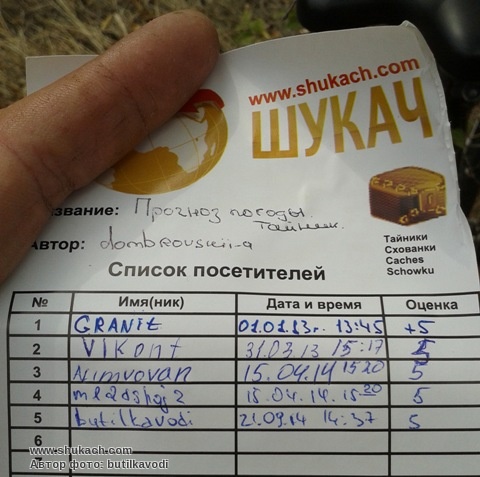 www.shukach.com
ШУКАЧ
азвание: Прогноз погоды.
Тайник.
Автор: dombrovskii-a
Тайники
Схованки
Caches
Schowku
Список посетителей
№ Имя(ник) Дата и время Оценка
1 GRANIt 01.01.13г. 13:45 +5
2 Vikont 31.03.13 15:17 5
3 Nimvovan 15.04.14 15 20 5
4 mladshoj2 15.04.14. 15-20 5
5 butilkavodi 21.09.14 14:37 5
6
7
www.shukach.com
Автор фото: butilkavodi